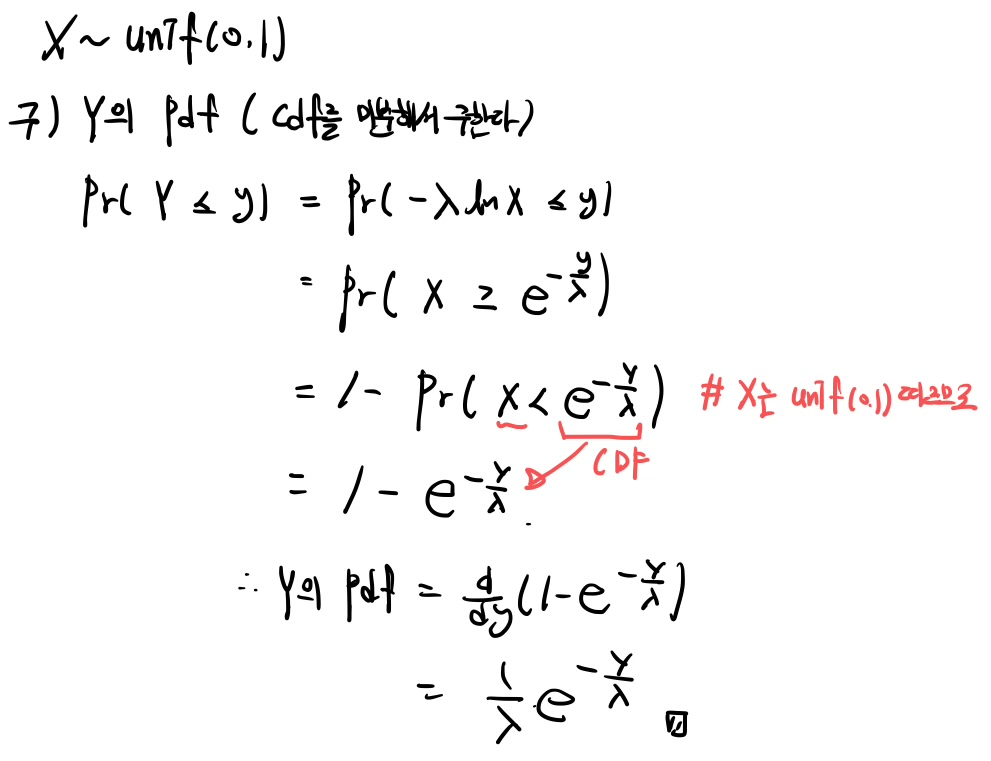 X ~ unif(0.1)
구) Y의 pdf ( cdf를 미분해서 구한다)
Pr( Y ≤ y) = Pr( -λ ln X ≤ y)
= Pr( X ≥ e^{-y/λ})
= 1 - Pr( X < e^{-Y/λ}) # X는 unif(0.1) 따르므로
CDF
= 1 - e^{-Y/λ}.
∴ Y의 pdf = d/dy (1-e^{-Y/λ})
= 1/λ e^{-Y/λ}